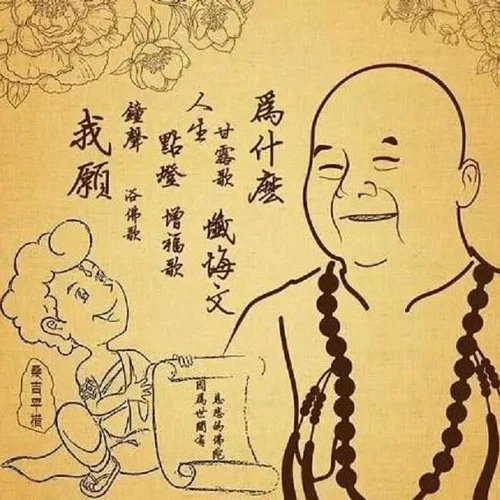 爲什麼
甘露歌 懺悔文
人生
點燈 增福歌
鐘聲 浴佛歌
我願
慈悲的佛陀
因爲世間有
桑吉平措